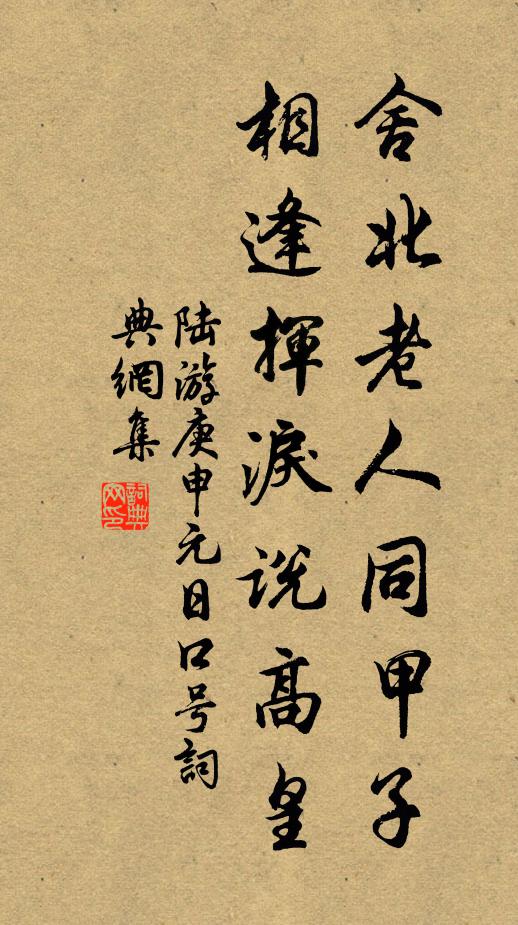 舍北老人同甲子
相逢揮淚說高皇
陸游庚申元日口号詞
典網集
詞典网印